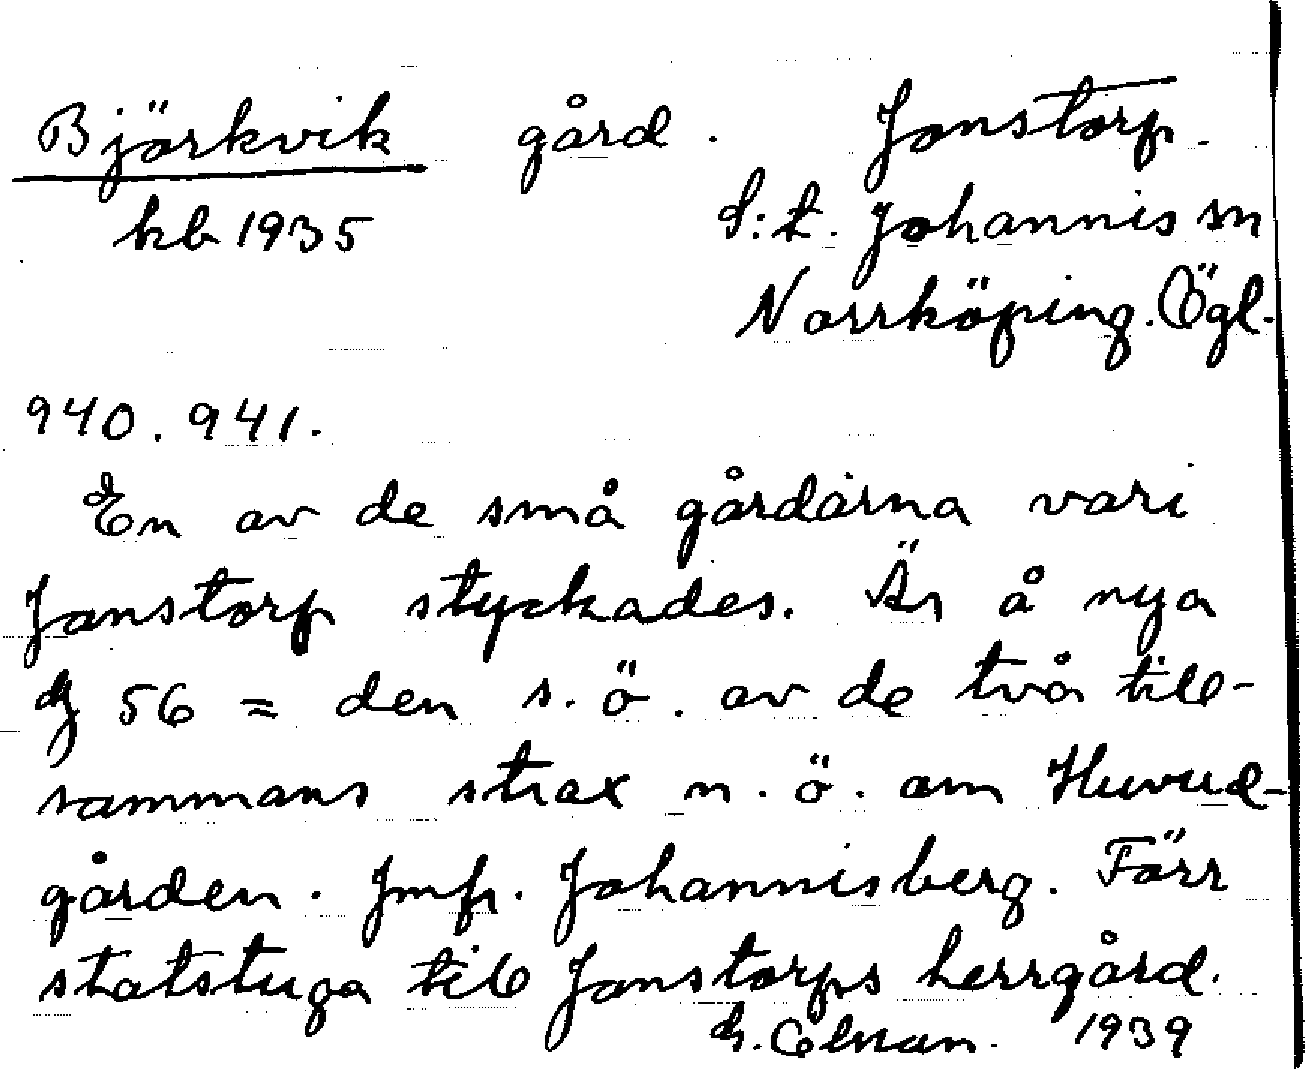 Björkvik gård. Jonstorp.
kb 1935 S:t. Johannis sn
Norrköping. Ögl.
940. 941.
En av de små gårdarna vari
Jonstorp styckades. Är å nya
56 = den s. ö. av de två till-
sammans strax n. ö. om Huvud-
gården. Jmfr. Johannisberg. Förr
statstuga till Jonstorps herrgård.
1939